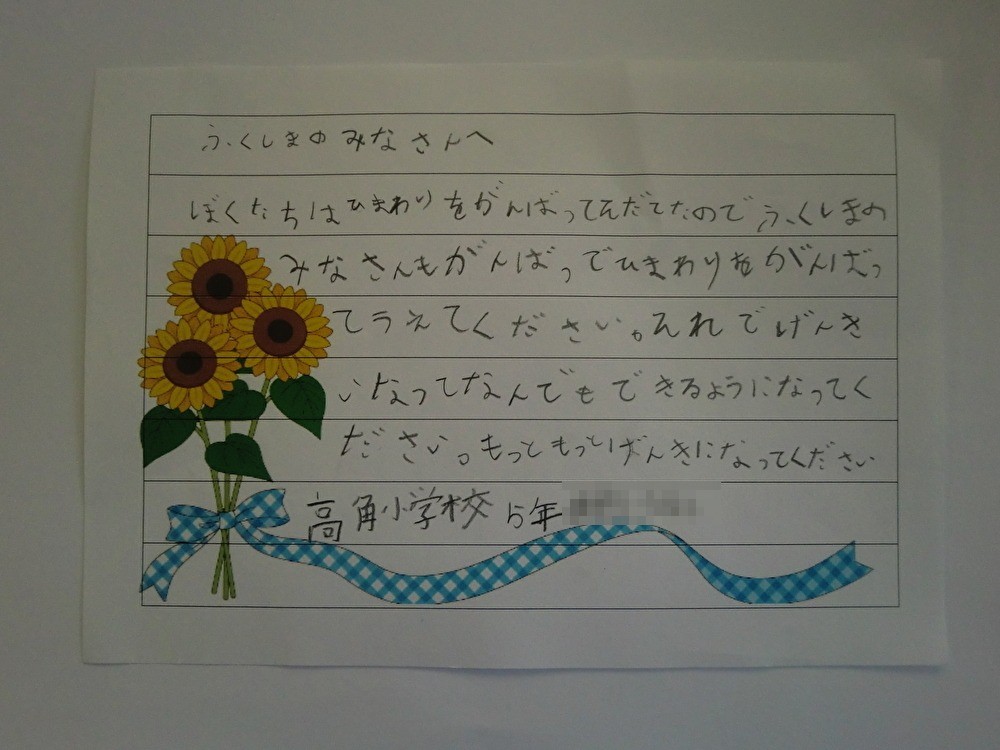 ふくしまのみなさんへ
ぼくたちはひまわりをがんばってそだてたのでふくしまの
みなさんもがんばってひまわりをがんばっ
てうえてください。それでげんき
になってなんでもできるようになってく
ださい。もっともっとげんきになってください
高角小学校5年